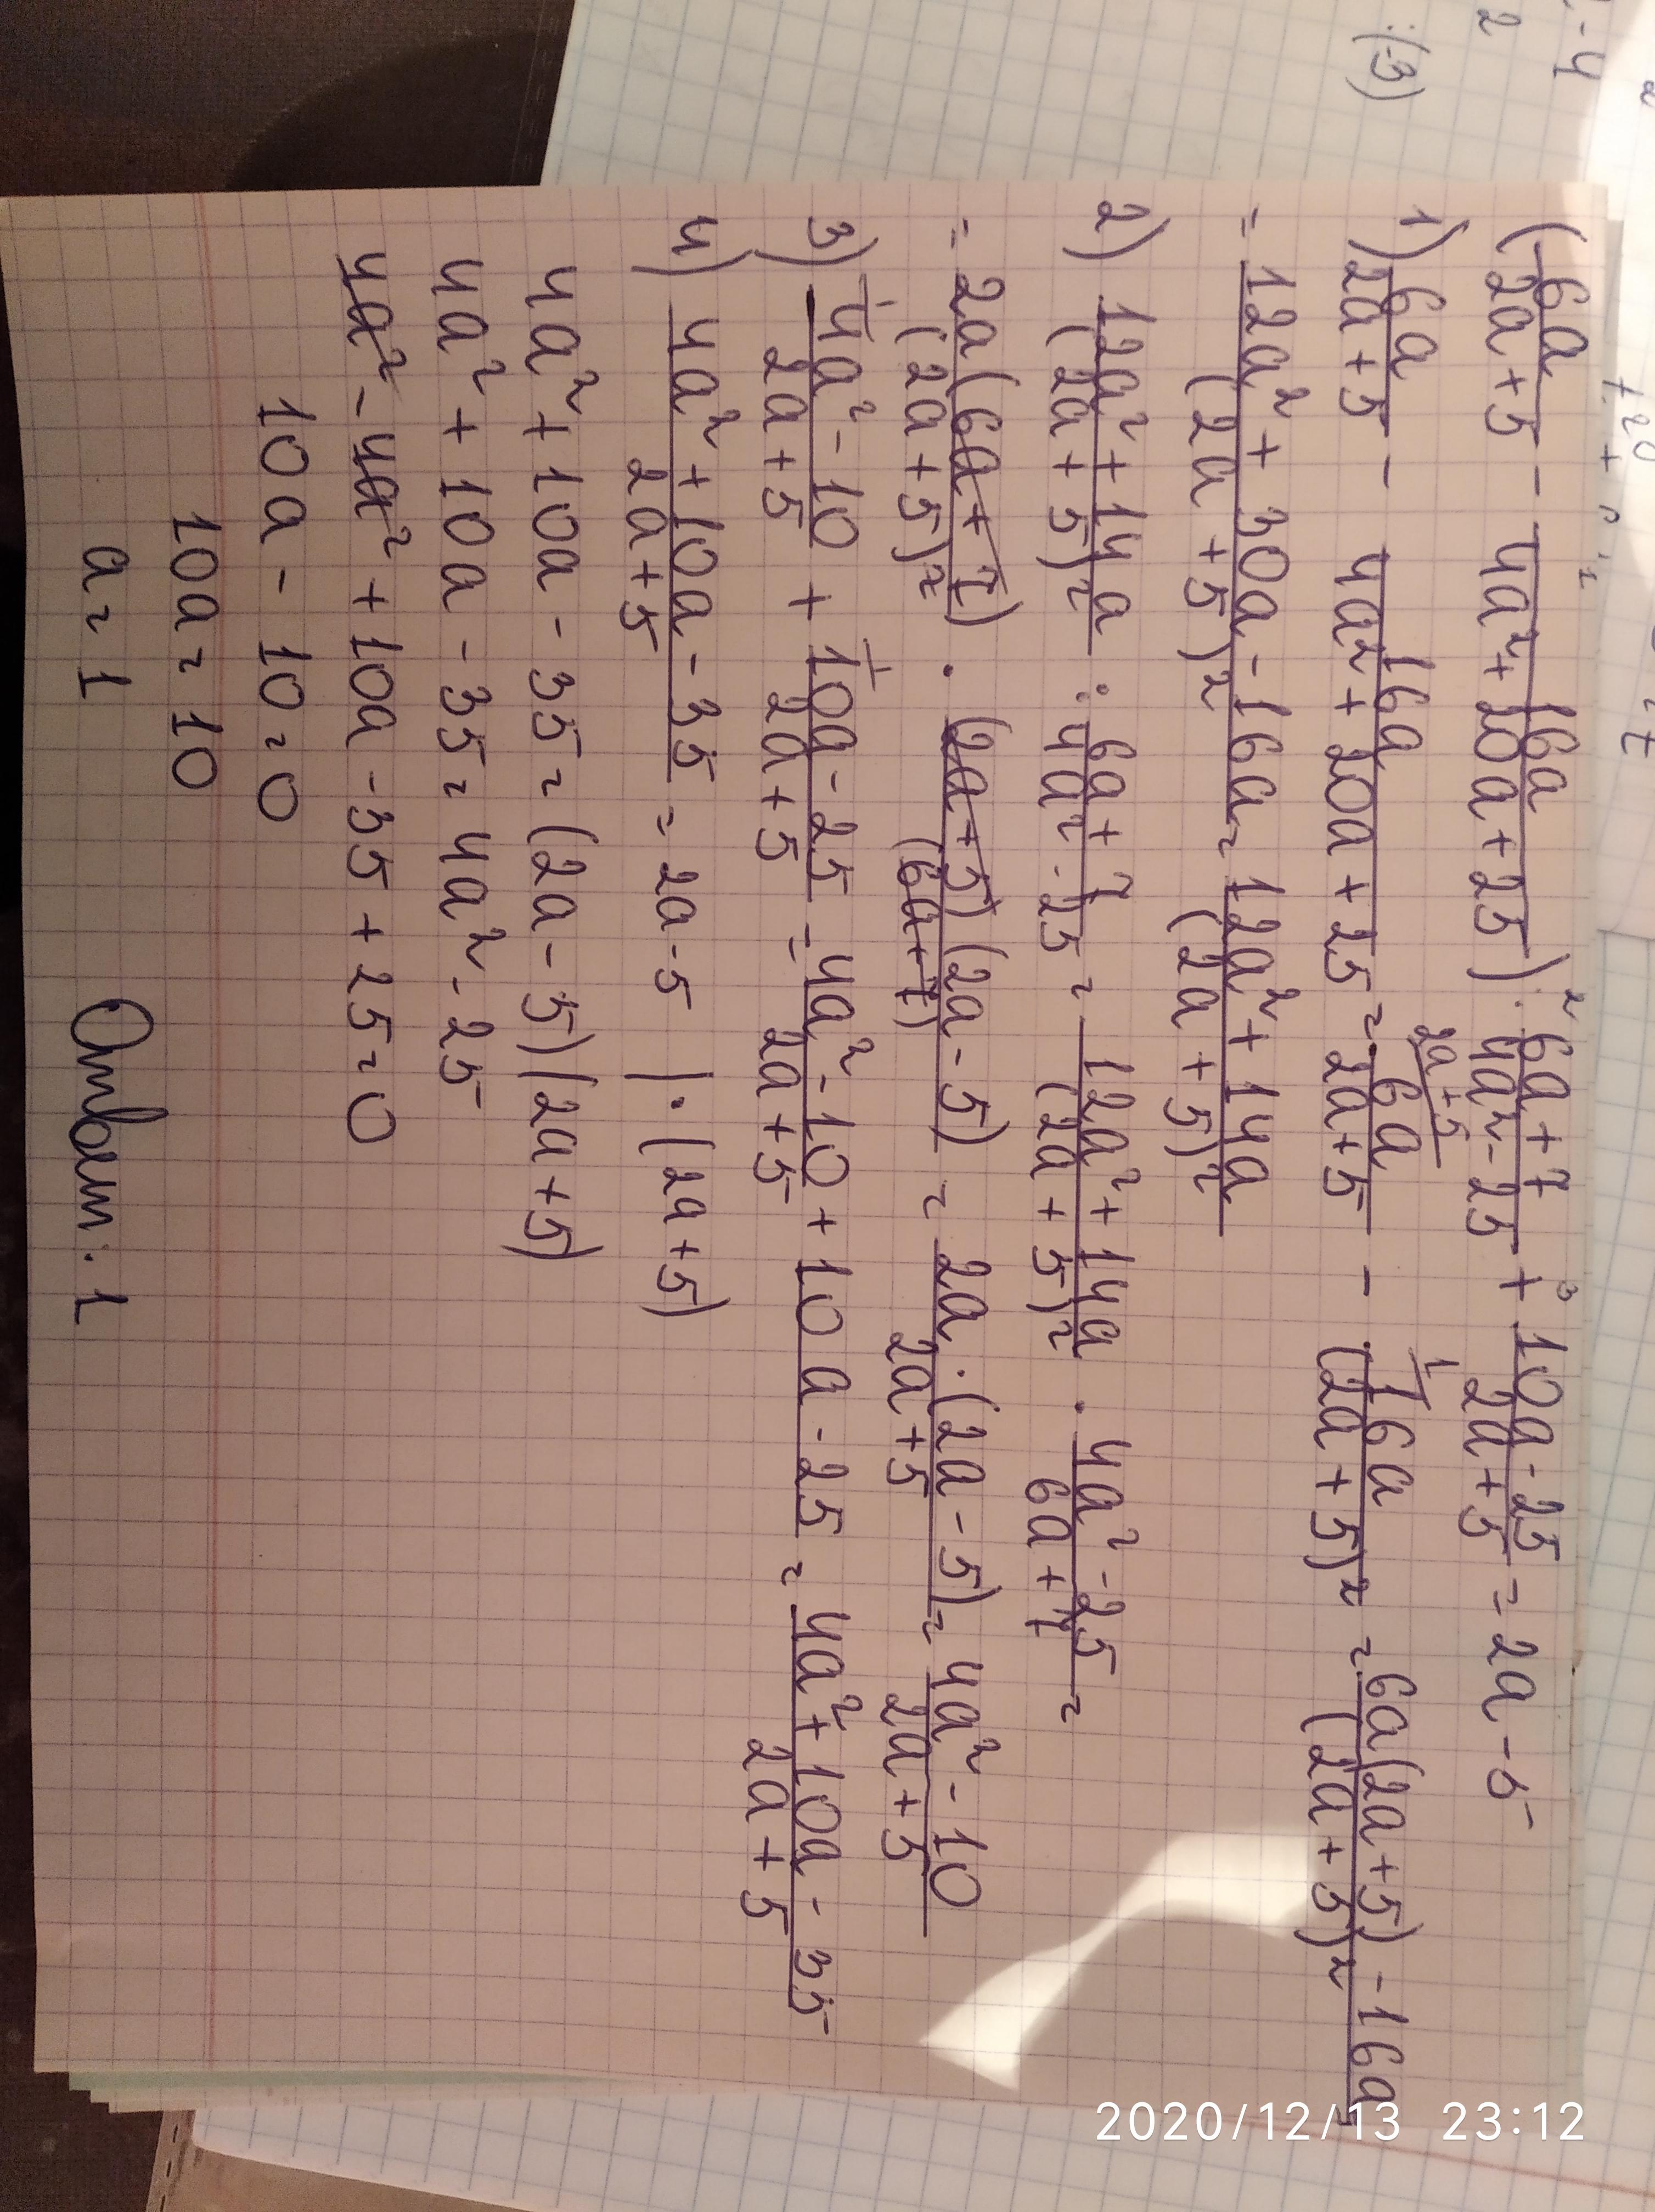 (6a/(2a+5) - 16a/(4a²+20a+25)) : (6a+7)/(4a²-25) + (10a-25)/(2a+5) = 2a-5
1) 6a/(2a+5) - 16a/(4a²+20a+25) = 6a/(2a+5) - 16a/(2a+5)² = (6a(2a+5)-16a)/(2a+5)² =
= (12a²+30a-16a)/(2a+5)² = (12a²+14a)/(2a+5)²
2) (12a²+14a)/(2a+5)² : (6a+7)/(4a²-25) = (12a²+14a)/(2a+5)² · (4a²-25)/(6a+7) =
= 2a(6a+7)/(2a+5)² · (2a+5)(2a-5)/(6a+7) = 2a·(2a-5)/(2a+5) = (4a²-10)/(2a+5)
3) (4a²-10)/(2a+5) + (10a-25)/(2a+5) = (4a²-10+10a-25)/(2a+5) = (4a²+10a-35)/(2a+5)
4) (4a²+10a-35)/(2a+5) = 2a-5 | ·(2a+5)
4a²+10a-35=(2a-5)(2a+5)
4a²+10a-35=4a²-25
4a²-4a²+10a-35+25=0
10a-10=0
10a=10
a=1
Ответ: 1
2020/12/13 23:12